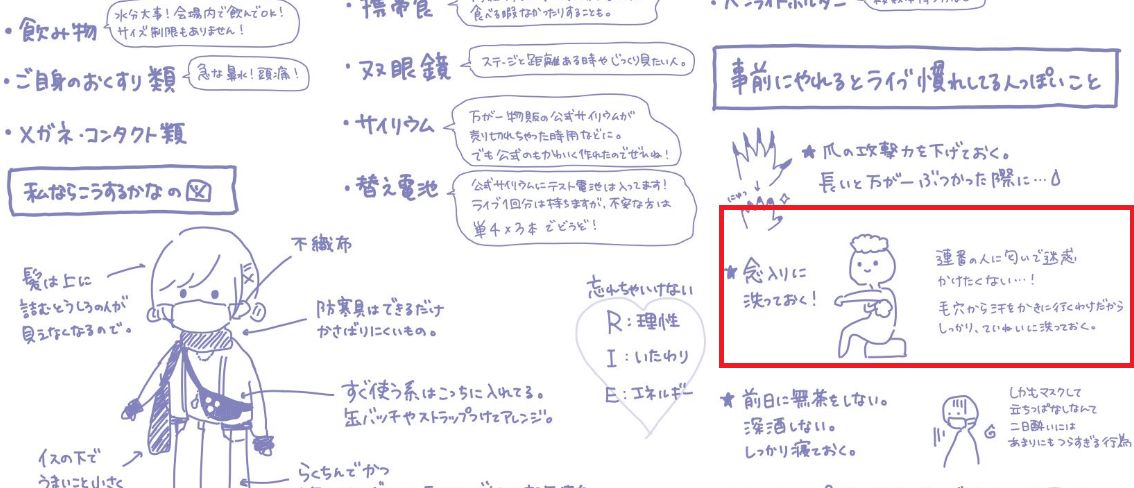 ・飲み物
水分大事！会場内で飲んでOK！
サイズ制限もありません！
・ご自身のおくすり類
急な鼻水！頭痛！
・メガネ・コンタクト類
私ならこうするかなの図
不織布
髪は上に
詰むとうしろの人が
見えなくなるので。
防寒具はできるだけ
かさばりにくいもの。
すぐ使う系はこっちに入れてる。
缶バッチやストラップつけてアレンジ。
イスの下で
うまいこと小さく
らくちんでかつ
・携帯食
食べる暇なかったりすることも。
・双眼鏡
ステージと距離ある時やじっくり見たい人。
・サイリウム
万が一物販の公式サイリウムが
売り切れちゃった時用などに。
でも公式のもかわいく作れたのでぜひね！
・替え電池
公式サイリウムにテスト電池は入ってます！
ライブ1回分は持ちますが、不安な方は
単4×3本でどうぞ！
忘れちゃいけない
R：理性
I：いたわり
E：エネルギー
・ペンライトホルダー
事前にやれるとライブ慣れしてる人っぽいこと
★爪の攻撃力を下げておく。
長いと万が一ぶつかった際に…
にゅっ
★念入りに
洗っておく！
連番の人に匂いで迷惑
かけたくない…！
毛穴から汗をかきに行くわけだから
しっかり、ていねいに洗っておく。
★前日に無茶をしない。
深酒しない。
しっかり寝ておく。
しかもマスクして
立ちっぱなしなんて
二日酔いには
あまりにもつらすぎる行為